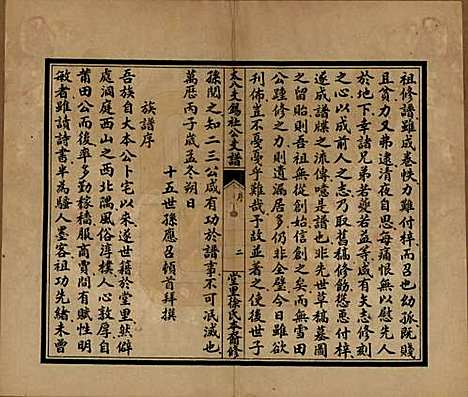 祖修譜雖成卷帙力雖付梓而召也幼孤既賤
且貧力又弗逮清夜自思每痛恨無以慰先人
於地下幸諸兄弟若夔若益等咸有矢志修刻
之心以成前人之志乃取舊稿修飭慫恿付梓
遂成譜牒之流傳噫是譜也非先世草稿墓圖
之留貽則吾祖無從創始信創之矣而無雪田
公踵修之力則遺漏居多仍非全璧今日雖欲
刊佈豈不戛戛乎難哉子故並著之使後世子
大分支錫社公支譜
序
二
堂里徐氏本裔修
孫閱之知二三公咸有功於譜事不可泯滅也
萬厯丙子歲孟冬朔日
十五世孫應召頓首拜撰
族譜序
吾族自大本公卜宅以來遂世籍於堂里厥僻
處洞庭西山之西北隅風俗淳樸人心敦厚自
莆田公而後率多勤稼穡服商賈間有賦性明
敏者雖讀詩書半為騷人墨客祖功先緒未曾